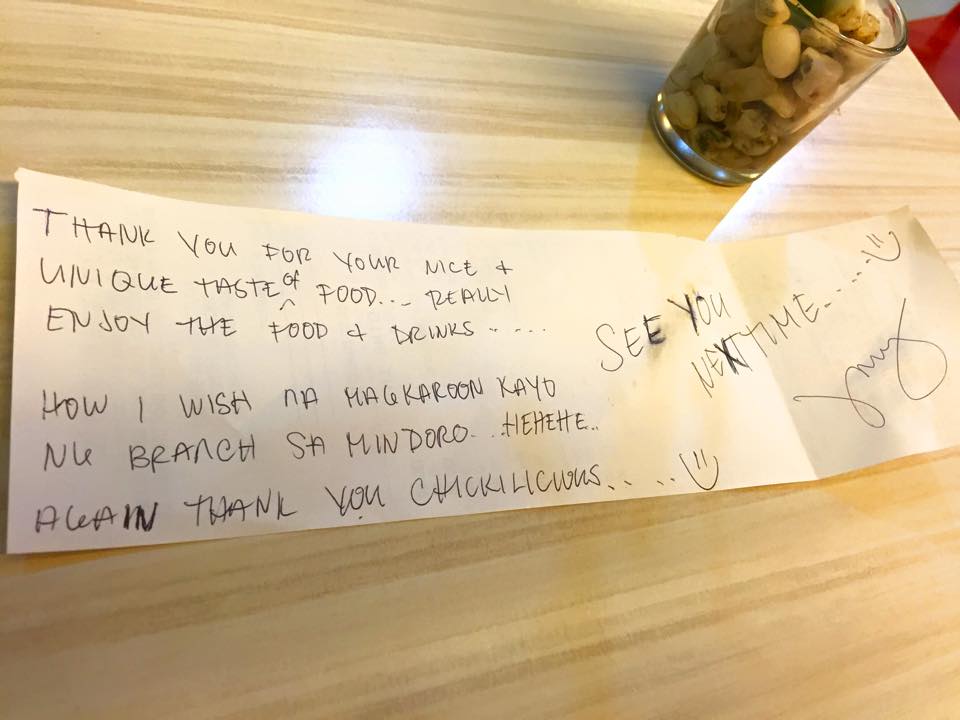 THANK YOU FOR YOUR NICE +
UNIQUE TASTE of FOOD... REALLY
ENJOY THE FOOD & DRINKS .....
HOW I WISH NA MAGKAROON KAYO
NG BRANCH SA MINDORO... HEHEHE..
AGAIN THANK YOU CHICKILICIOUS.. ..
SEE YOU
NEXT TIME.....